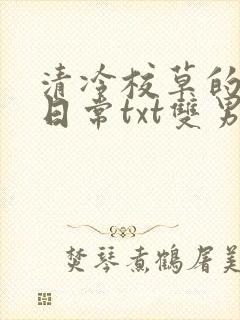 清冷校草的
日常txt雙男
焚琴煮鶴屠美